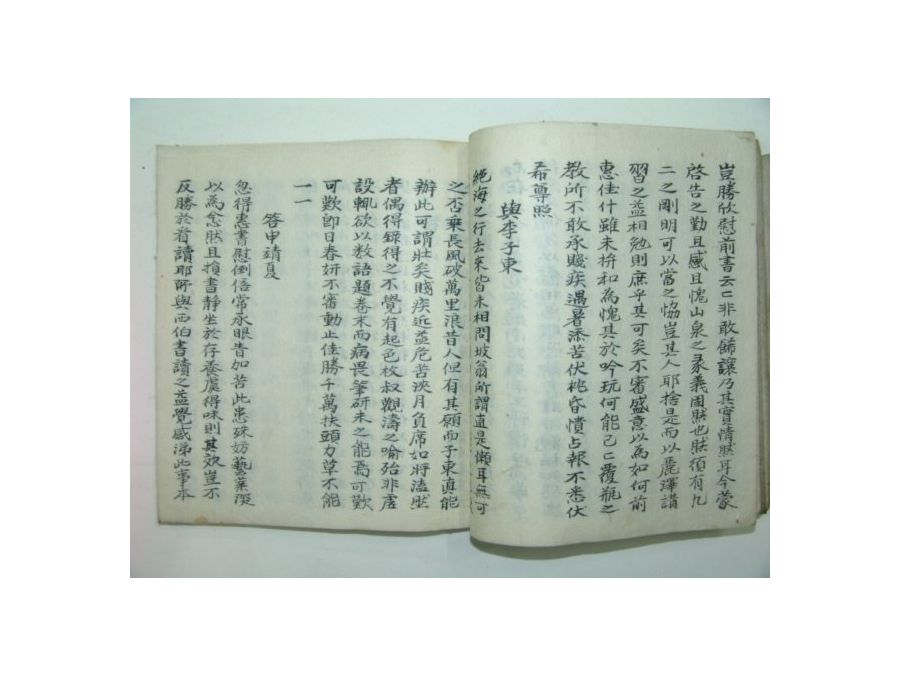 豈勝欣慰前書云云非敢飾讓乃其實情然耳今蒙
啓告之勤且感且愧山泉之彖義固然也然須有九
二之剛明可以當之恊豈其人耶捨是而以麗澤講
習之益相勉則庶乎其可矣不審盛意以為如何前
惠佳什雖未拚和為愧其於吟玩何能已已覆瓶之
教所不敢承賤疾遇暑添苦伏枕昏憒占報不悉伏
希尊照
與李子東
絶海之行去來皆未相問坡翁所謂直是懶耳無可
之否乗長風破萬里浪昔人但有其願而子東真能
辦此可謂壯矣賤疾近益危苦浹月負席如將溘然
者偶得録得之不覺有起色枚叔觀濤之喻殆非虗
設輒欲以数語題卷末而病畏筆研未之能焉可歎
可歎卽日春妍不審動止佳勝千萬扶頭力草不能
一一
答申靖夏
忽得惠書慰倒倍常承眼眚加苦此患殊妨藝業深
以為念然且損書静坐於存養處得味則其效豈不
反勝於看讀耶所與西伯書讀之益覺感涕此事本